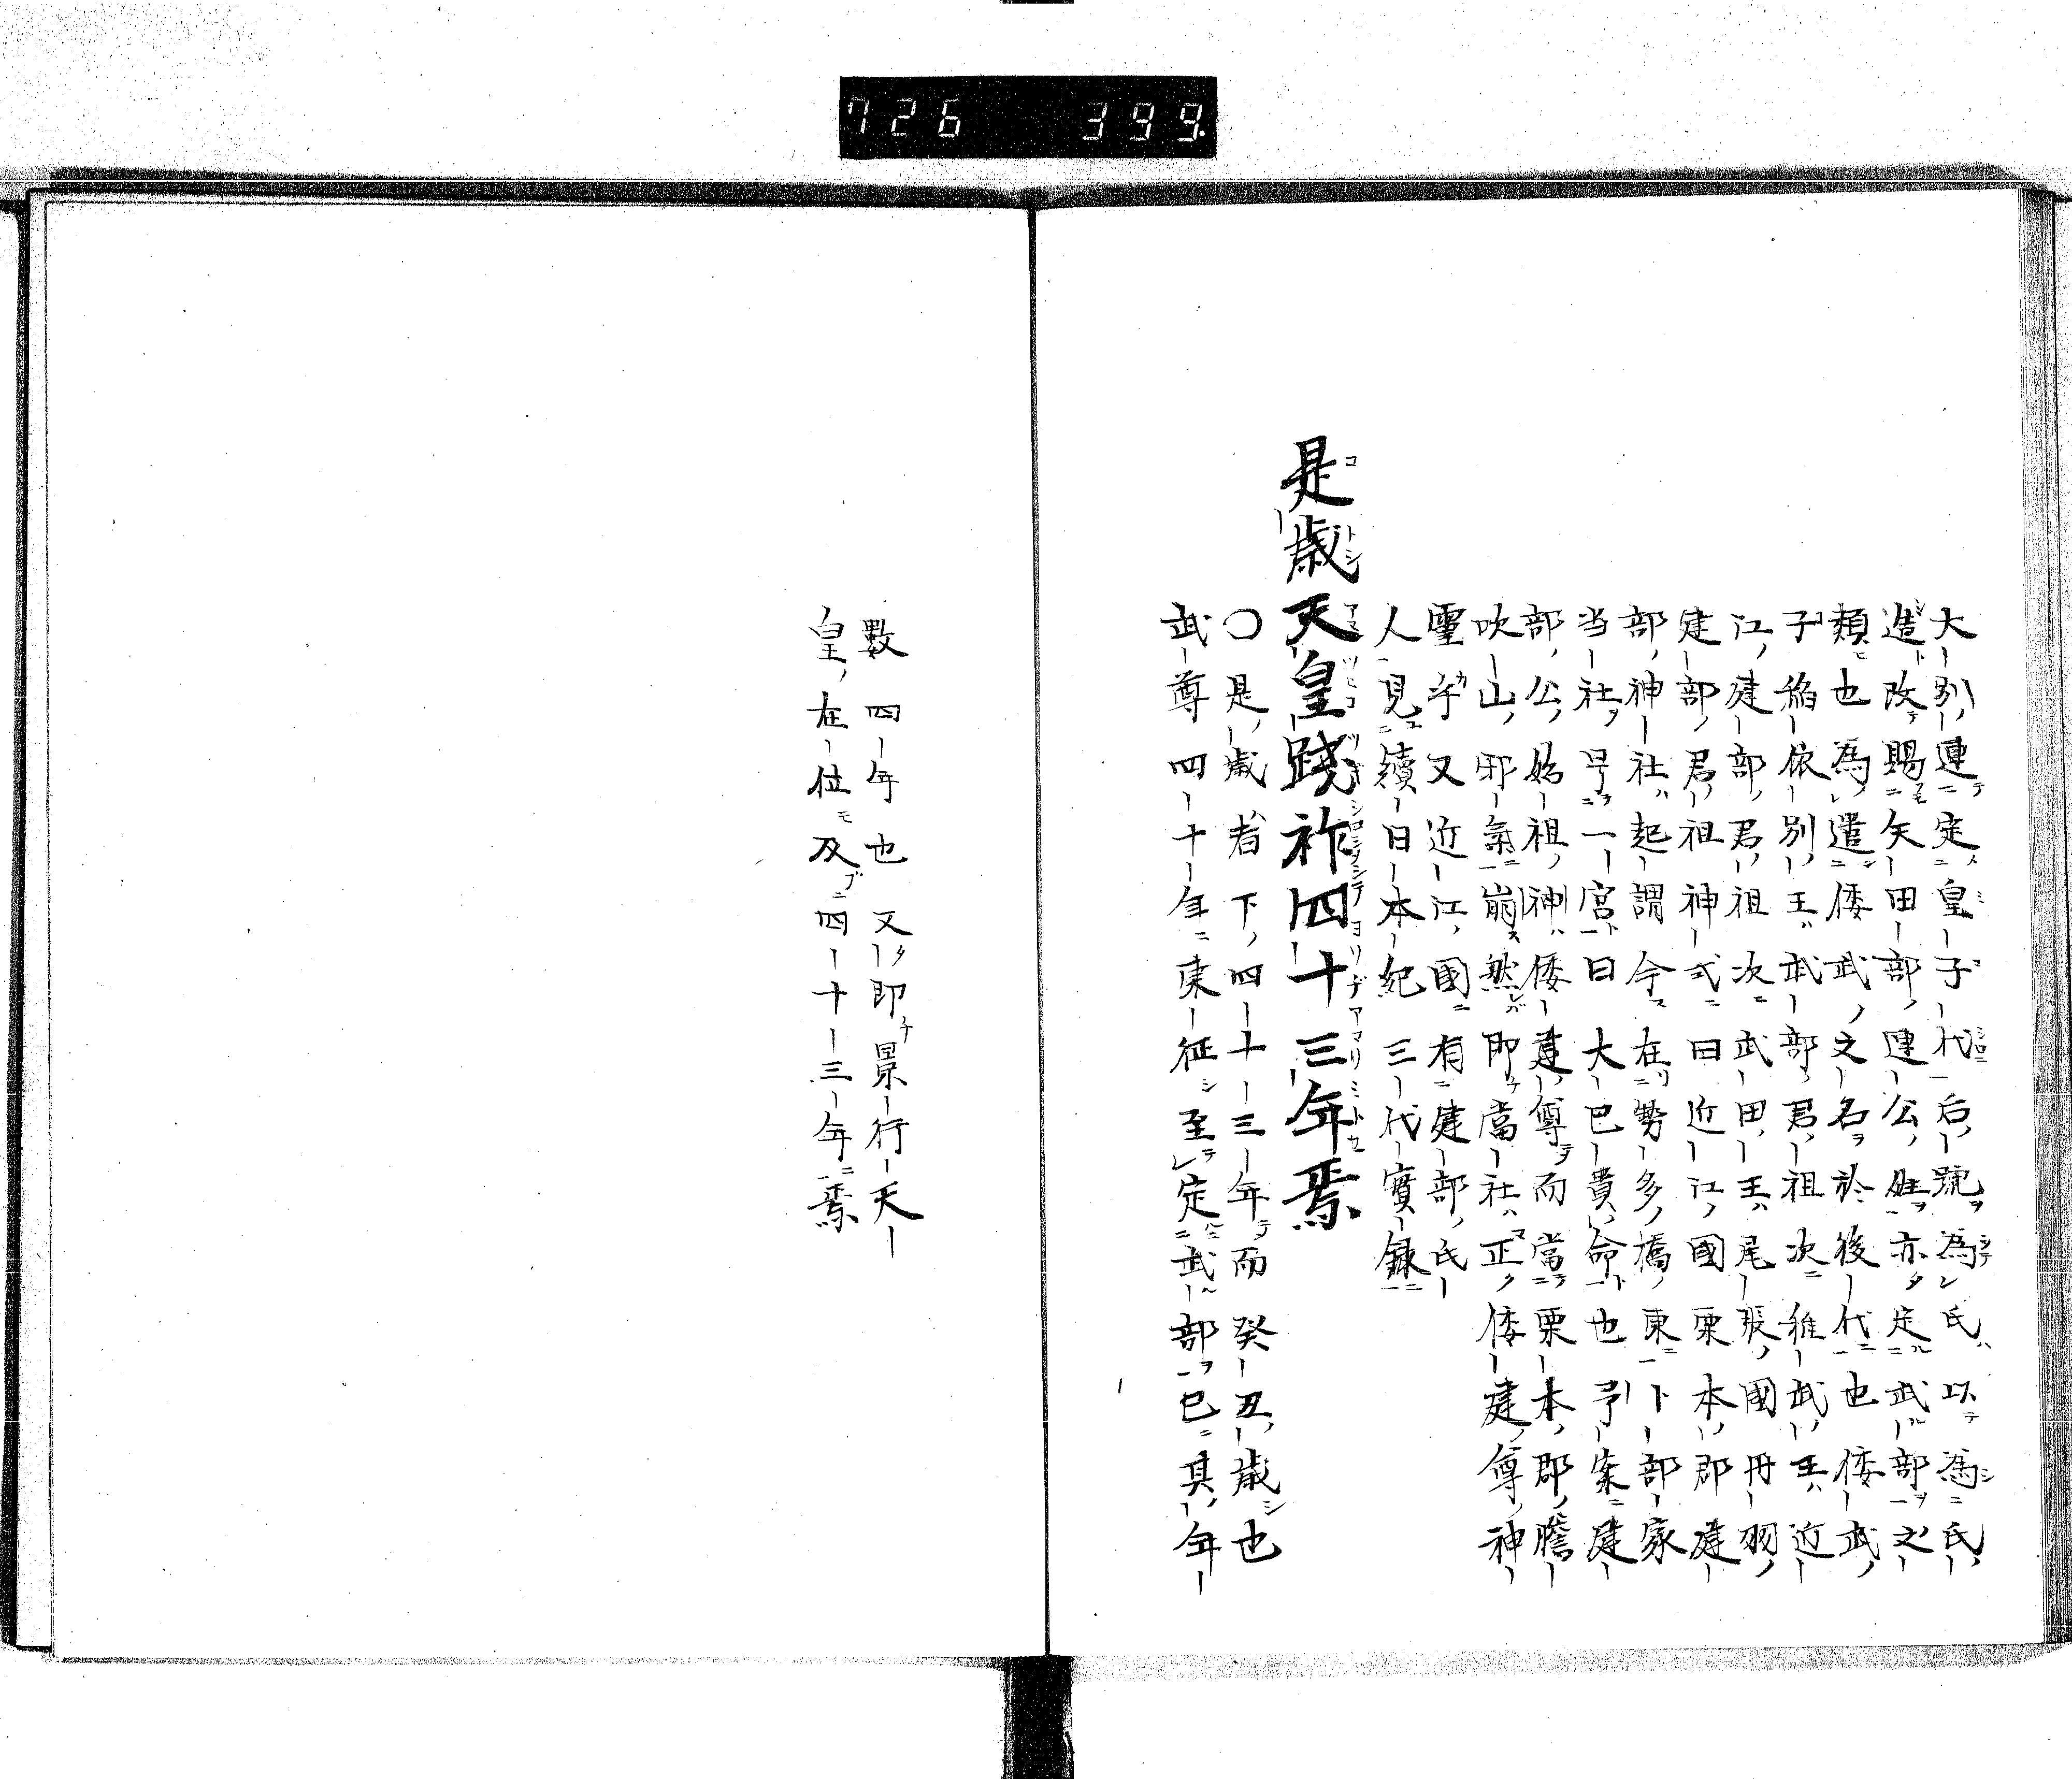 726 399.
大別連定皇子代后號為氏以為氏
造改賜矢田部連公姓亦定武部之
類也為遣倭武之名於後代也倭武
子稲依別王武部君祖次稚武王近
江建部君祖次武田王尾張國丹羽
建部君祖神式曰近江國栗本郡建
部神社起謂今在勢多橋東卜部家
当社号一宮曰大巳貴命也予案建
部公始祖神倭建尊而當栗本郡膽
吹山邪氣崩然即當社正倭建尊神
霊乎又近江國有建部氏
人見續日本紀三代實録
是歳天皇踐祚四十三年焉
コトシアマツヒコツギシロシメシテヨリヨヂアマリミトセ
〇是歳者下四十三年而癸丑歳也
武尊四十年東征至定武部巳其年
數四年也又即景行天
皇在位及四十三年焉